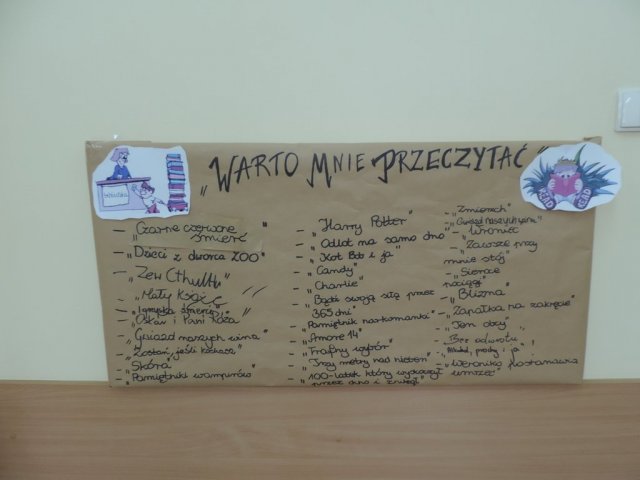 „WARTO MNIE PRZECZYTAĆ"
– „Czarne czerwone
śmierć
– „Dzieci z dworca ZOO"
– „Zew Cthulhu"
„Mały Książę"
– Oskar i Pani Róża"
– „Gwiazd naszych wina"
– „Zostań, jeśli kochasz"
– „Skóra"
– „Pamiętniki wampirów"
– „Harry Potter"
– „Odlot na samo dno"
– „Kot Bob i ja"
– „Candy"
– „Charlie"
– „Bądź swoją siłą przez
365 dni"
– „Pamiętnik narkomanki"
– „Amore 14"
– „Trafny wybór"
– „Trzy metry nad niebem"
– „100-latek który wyskoczył
przez okno i zniknął"
– „Zmierzch"
– „Zawsze przy
mnie stój"
– „Sierace
pociągi"
– „Blizna"
– „Zapałka na zakręcie"
– „Ten obcy"
– „Bez odwrotu"
– „Weronika postanawia
umrzeć"